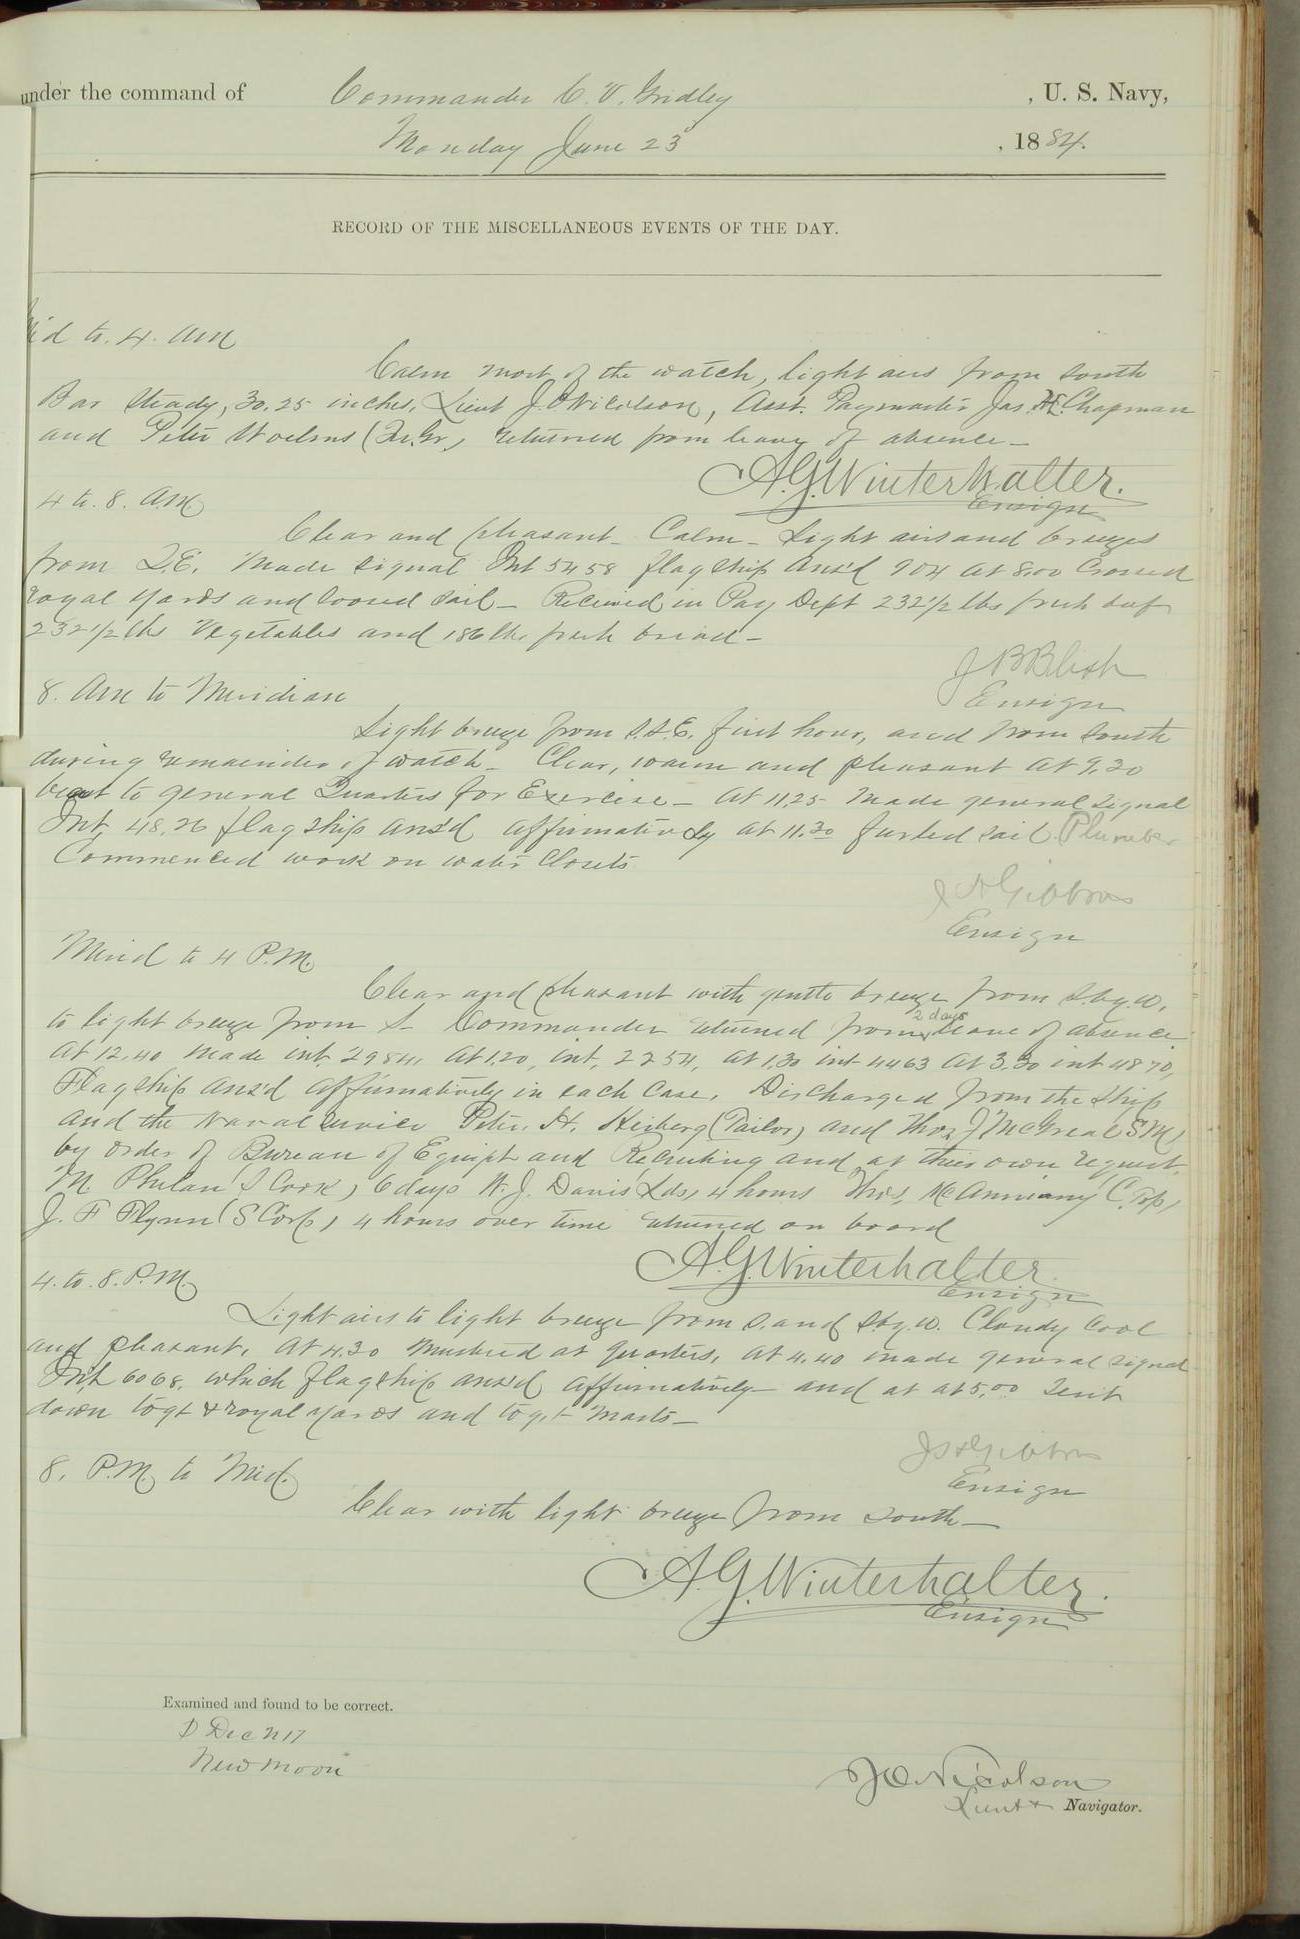 under the command of Commander C. V. Gridley, U. S. Navy,
Monday June 23, 1884.
RECORD OF THE MISCELLANEOUS EVENTS OF THE DAY.
Mid to. 4. AM
Calm most of the watch, light airs from South
Bar Steady, 30.25 inches. Lieut J. O Nicolson, Asst. Paymaster Jas. H. Chapman
and Peter (Fr. Gr.) returned from leave of absence—
A.G. Winterhalter.
Ensign
4 to. 8. A.M.
Clear and pleasant— Calm— Light airs and breezes
from S.E. Made signal Int 5458 flagship Ans'd 704 at 8.00 Crossed
royal yards and loosed sail— Received in Pay Dept 232 1/2 lbs fresh beef
232 1/2 lbs Vegetables and 186 lbs fresh bread—
J B Blish
Ensign
8. AM to Meridian
Light breeze from S.S.E. first hour, and from South
during remainder of watch— Clear, warm and pleasant at 9.30
beat to general Quarters for Exercise— At 11.25 made general signal
Int, 48.26 flagship ans'd affirmatively at 11.30 furled sail. Plumber
Commenced work on water closets
J H Gibbons
Ensign
Merid to 4 P.M.
Clear and pleasant with gentle breeze from S. by. W.
to light breeze from S— Commander returned from 2 days leave of absence
At 12.40 made int. 2984, at 1.20, int, 2254, at 1.30 int 4463 at 3.30 int 4870,
Flagship ans'd affirmatively in each case. Discharged from the Ship
and the Naval Service Peter. H. Heiberg (Tailor) and Thos J McGreal (SM)
by order of Bureau of Equipt and Recruiting and at their own request.
M. Phelan (S Cook) 6 days W. J. Davis Lds, 4 hours Thos, (C. Top)
J. F Flynn (S Corp) 4 hours over time returned on board
A.G. Winterhalter
Ensign
4. to. 8. P.M.
Light airs to light breeze from S. and S. by. W. Cloudy cool
and pleasant. At 4.30 mustered at quarters. At 4.40 made general signal
Int. 6068. which flagship ans'd affirmatively— and at at 5.00 Sent
down to'gt & royal yards and to'g.t masts—
J H Gibbons
Ensign
8. P.M. to Mid.
Clear with light breeze from South—
A.G. Winterhalter.
Ensign
Examined and found to be correct.
Dec N 17
New Moon
J O Nicolson
Lieut & Navigator.